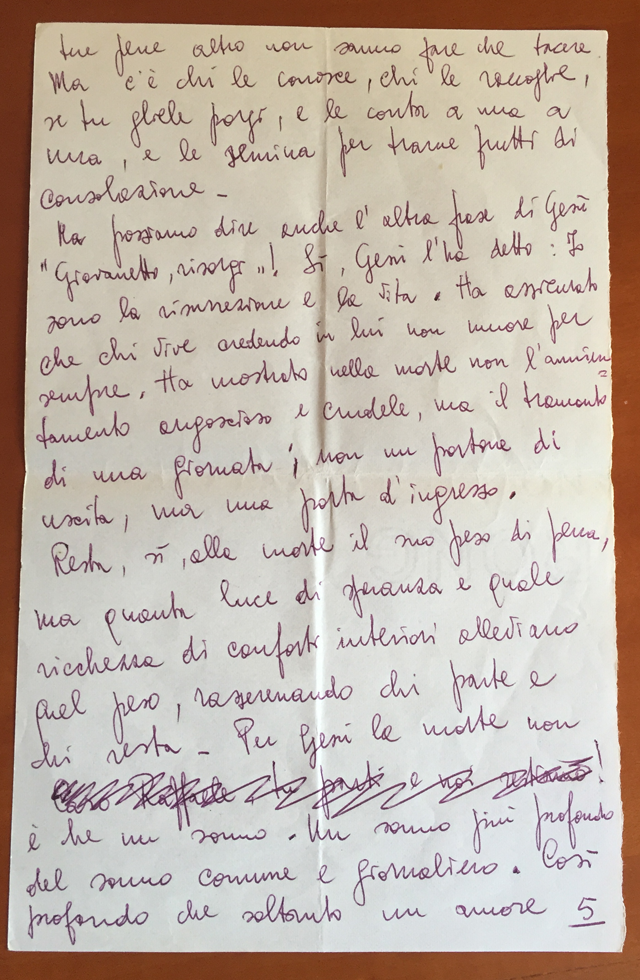 tue pene altro non sanno fare che tacere
Ma c'è chi le conosce, chi le raccoglie,
se tu gliele porgi, e le conta a una a
una, e le semina per trarne frutti di
consolazione –
Ma possiamo dire anche l'altra frase di Gesù
"Giovanetto, risorgi"! Sì, Gesù l'ha detto: Io
sono la risurrezione e la vita. Ha assicurato
che chi vive credendo in lui non muore per
sempre. Ha mostrato nella morte non l'annien=
tamento angoscioso e crudele, ma il tramonto
di una giornata; non un portone di
uscita, ma una porta d'ingresso.
Resta, sì, alla morte il suo peso di pena,
ma quanta luce di speranza e quale
ricchezza di conforti interiori allediano
quel peso, rasserenando chi parte e
chi resta – Per Gesù la morte non
tu parti e noi restiamo!
è che un sonno. Un sonno più profondo
del sonno comune e giornaliero. Così
profondo che soltanto un amore 5